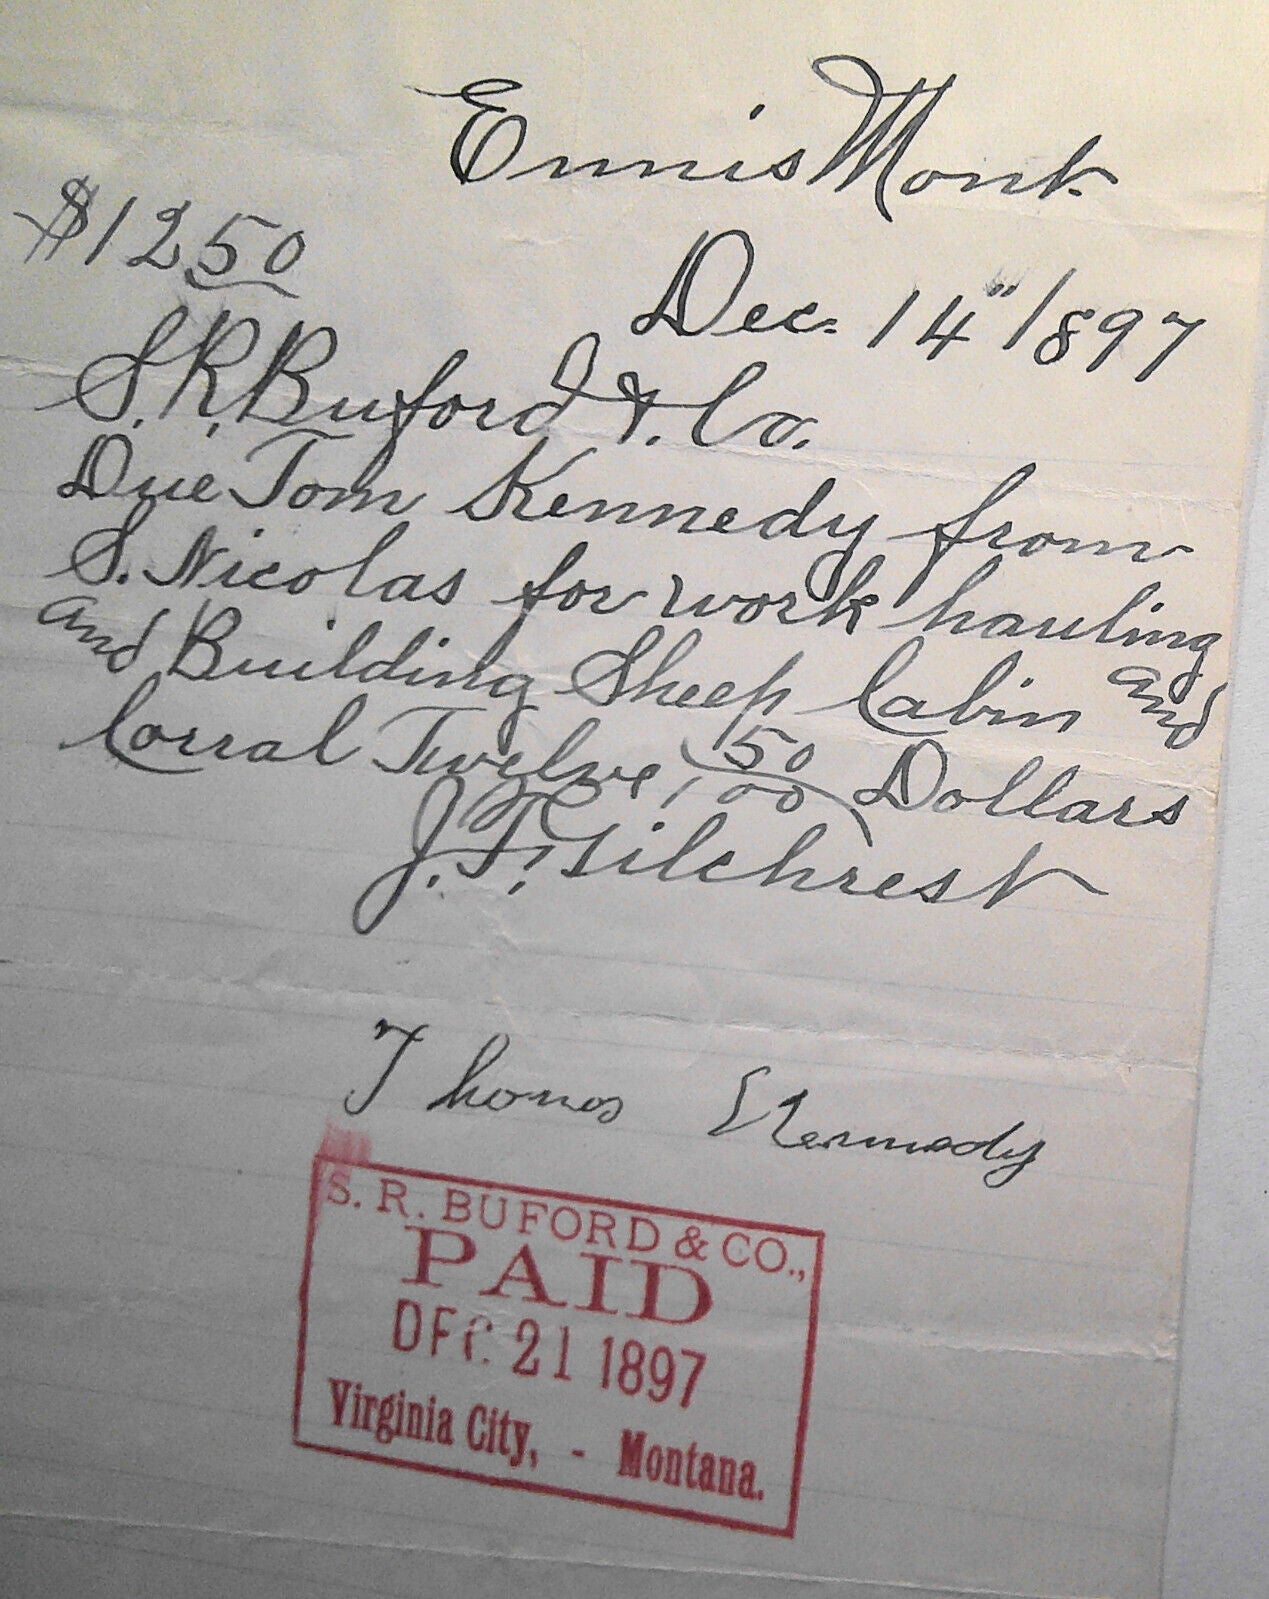 Ennis Mont.
$12 50
Dec. 14" 1897
S. R. Buford & Co.
Due Tom Kennedy from
S. Nicolas for work hauling
and Building Sheep Cabin and
Corral Twelve, 50/00 Dollars
J. T. Gilchrest
Thomas Kennedy
S. R. BUFORD & CO.,
PAID
DEC 21 1897
Virginia City, - Montana.